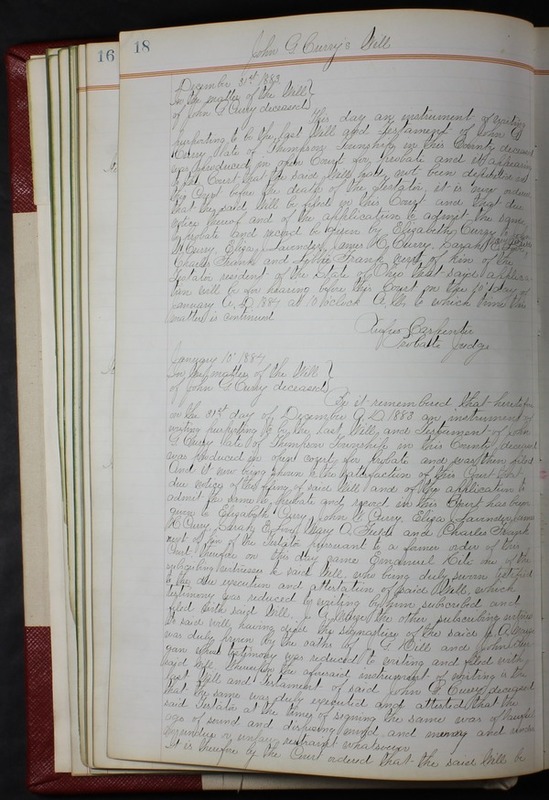 16
18
John G Curry's Will
December 31st 1883
In the matter of the Will
of John G Curry deceased
This day an instrument of writing
purporting to be the last Will and Testament of John G
Curry late of Thompson Township in this County deceased
was produced in open Court for probate and it appearing
to the Court that the said Will has not been
before the death of the testator, it is now ordered
that the said Will be filed in this Court and that due
notice thereof and of the application to admit the same
to probate and record be given to Elizabeth Curry
Curry, Eliza Launder, James H Curry, Sarah
and Frank next of kin of the
testator resident of the State of Ohio that said applica
tion will be for hearing before this Court on the 10th day of
January A.D. 1884 at 10 o'clock A.M. to which time this
matter is continued
Rufus Carpenter
Probate Judge
January 10 1884
In the matter of the Will
of John G Curry deceased
Be it remembered that heretofore
on the 31st day of December A.D 1883 an instrument of
writing purporting to be the last Will and Testament of John
G Curry late of Thompson Township in this County deceased
was produced in open court for Probate and was then filed
And it now being shown to the satisfaction of this Court that
due notice of the filing of said Will and of the application to
admit the same to probate and record in this Court has been
given to Elizabeth Curry, John Curry, Eliza Launder, James
H Curry, Sarah Mary A Fields and Charles Frank
next of kin of the Testator pursuant to a former order of this
Court. Therefore on this day came Emanuel one of the
subscribing witnesses to said Will, who being duly sworn testified
to the due execution and attestation of said Will, which
testimony was reduced to writing by him subscribed and
filed with said Will. J. A. the other subscribing witness
to said will having died the signature of the said J. A.
was duly proven by the oaths of Dill and John
whose testimony was reduced to writing and filed with
said Will. Thereupon the aforesaid instrument of writing is the
last Will and Testament of said John G Curry deceased
that the same was duly executed and attested that the
said Testator at the time of signing the same was of lawful
age of sound and disposing mind and memory and under
no undue or unlawful restraint whatsoever
It is therefore by the Court ordered that the said Will be